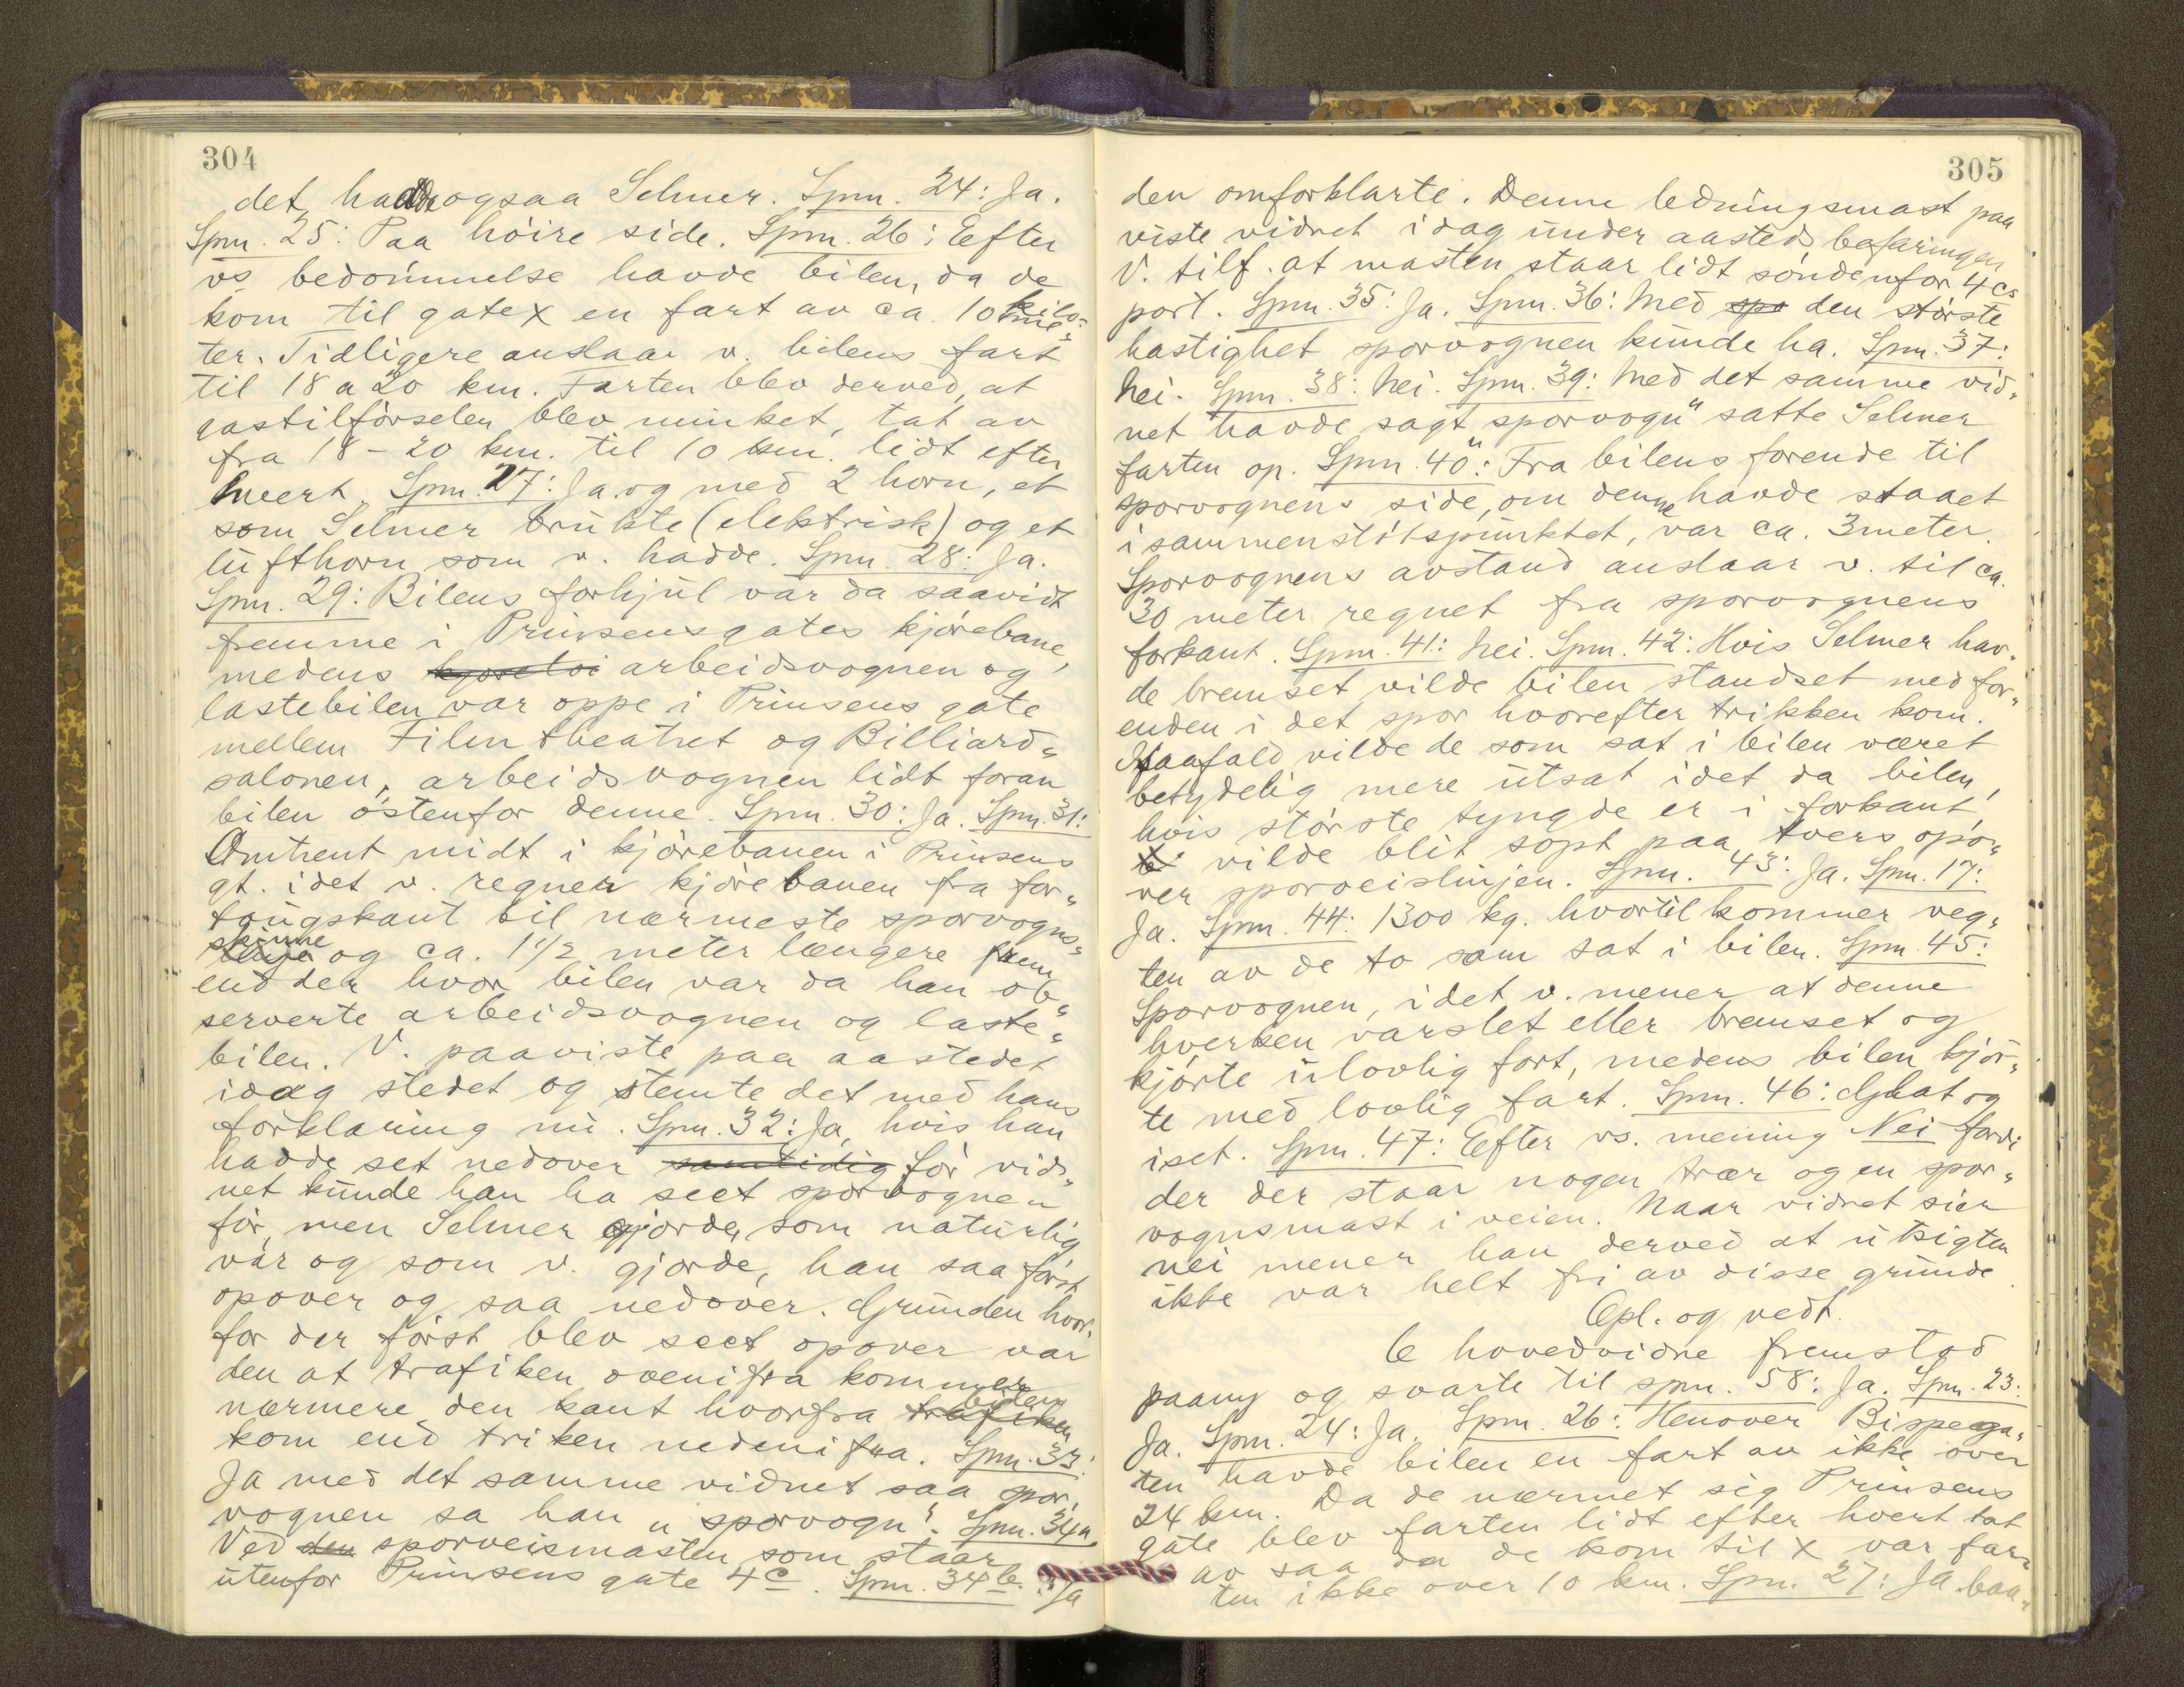 304
det hadde ogsaa Selmer. Spm. 24: Ja.
Spm. 25: Paa høire side. Spm. 26: Eefter
vs bedømmelse havde bilen, da de
kom til gatex en fart av ca. 10 kilome-
ter. Tidligere anslaar v. bilens fart
til 18 a 20 km. Farten blev derved, at
gastilførselen blev minket, tat av
fra 18 - 20 km. til 10 km. lidt efter
hvert. Spm. 27: Ja. og med 2 horn, et
som Selmer brukte (elektrisk) og et
lufthorn som v. hadde. Spm. 28: Ja.
Spm. 29: Bilens forhjul var da saavidt
fremme i Prinsensgates kjørebane,
medens arbeidsvognen og
lastebilen var oppe i Prinsens gate
mellem Filmtheatret og Billiard-
salonen, arbeidsvognen lidt foran
bilen østenfor denne. Spm. 30: Ja. Spm. 31:
Omtrent midt i kjørebanen i Prinsens
gt. idet v. regner kjørebanen fra for-
tougskant til nærmeste sporvogns-
skinne og ca. 1 1/2 meter længere frem
end der hvor bilen var da han ob-
serverte arbeidsvognen og laste-
bilen. V. paaviste paa aastedet
idag stedet og stemte det med hans
forklaring nu. Spm. 32: Ja, hvis han
hadde set nedover samtidig før vid-
net kunde han ha seet sporvognen
før, men Selmer gjorde, som naturlig
var og som v. gjorde, han saa først
opover og saa nedover. Grunden hvor-
for der først blev seet opover var
den at trafiken ovenifra kommer
nærmere den kant hvorfra trafiken bilen
kom end triken nedenifra. Spm. 33:
Ja med det samme vidnet saa spor-
vognen sa han "sporvogn". Spm. 34a
Ved den sporveismasten som staar
utenfor Prinsens gate 4c. Spm. 34b. Ja
305
den omforklarte. Denne ledningsmast paa
viste vidnet idag under aastedsbefaringen
V. tilf. at masten staar lidt søndenfor 4cs
port. Spm. 35: Ja. Spm. 36: Med spo den største
hastighet sporvognen kunde ha. Spm. 37:
Nei. Spm. 38: Nei. Spm. 39: Med det samme vid-
net havde sagt "sporvogn" satte Selmer
farten op. Spm. 40: Fra bilens forende til
sporvognens side, om denne havde staaet
i sammenstøtspunktet, var ca. 3 meter.
Sporvognens avstand anslaar v. til ca.
30 meter regnet fra sporvognens
forkant. Spm. 41: Nei. Spm. 42: Hvis Selmer hav-
de bremset vilde bilen standset med for-
enden i det spor hvorefter trikken kom.
Isaafald vilde de som sat i bilen været
betydelig mere utsat idet da bilen,
hvis største tyngde er i forkant,
vilde blit sopt paa tvers opo-
ver sporveislinjen. Spm. 43: Ja. Spm. 17:
Ja. Spm. 44: 1300 kg. hvortil kommer veg-
ten av de to som sat i bilen. Spm. 45:
Sporvognen, idet v. mener at denne
hverken varslet eller bremset og
kjørte ulovlig fort, medens bilen kjør-
te med lovlig fart. Spm. 46: Glat og
iset. Spm. 47: Eefter vs. mening Nei fordi
der der staar nogen trær og en spor-
vognsmast i veien. Naar vidnet sier
nei mener han derved at utsigten
ikke var helt fri av disse grunde.
Opl. og vedt.
6 hovedvidne fremstod
paany og svarte til spm. 58: Ja. Spm. 23:
Ja. Spm. 24: Ja. Spm. 26: Henover Bispega-
ten havde bilen en fart av ikke over
24 km. Da de nærmet sig Prinsens
gate blev farten lidt efter hvert tat
av saa da de kom til x var far-
ten ikke over 10 km. Spm. 27: Ja baa-